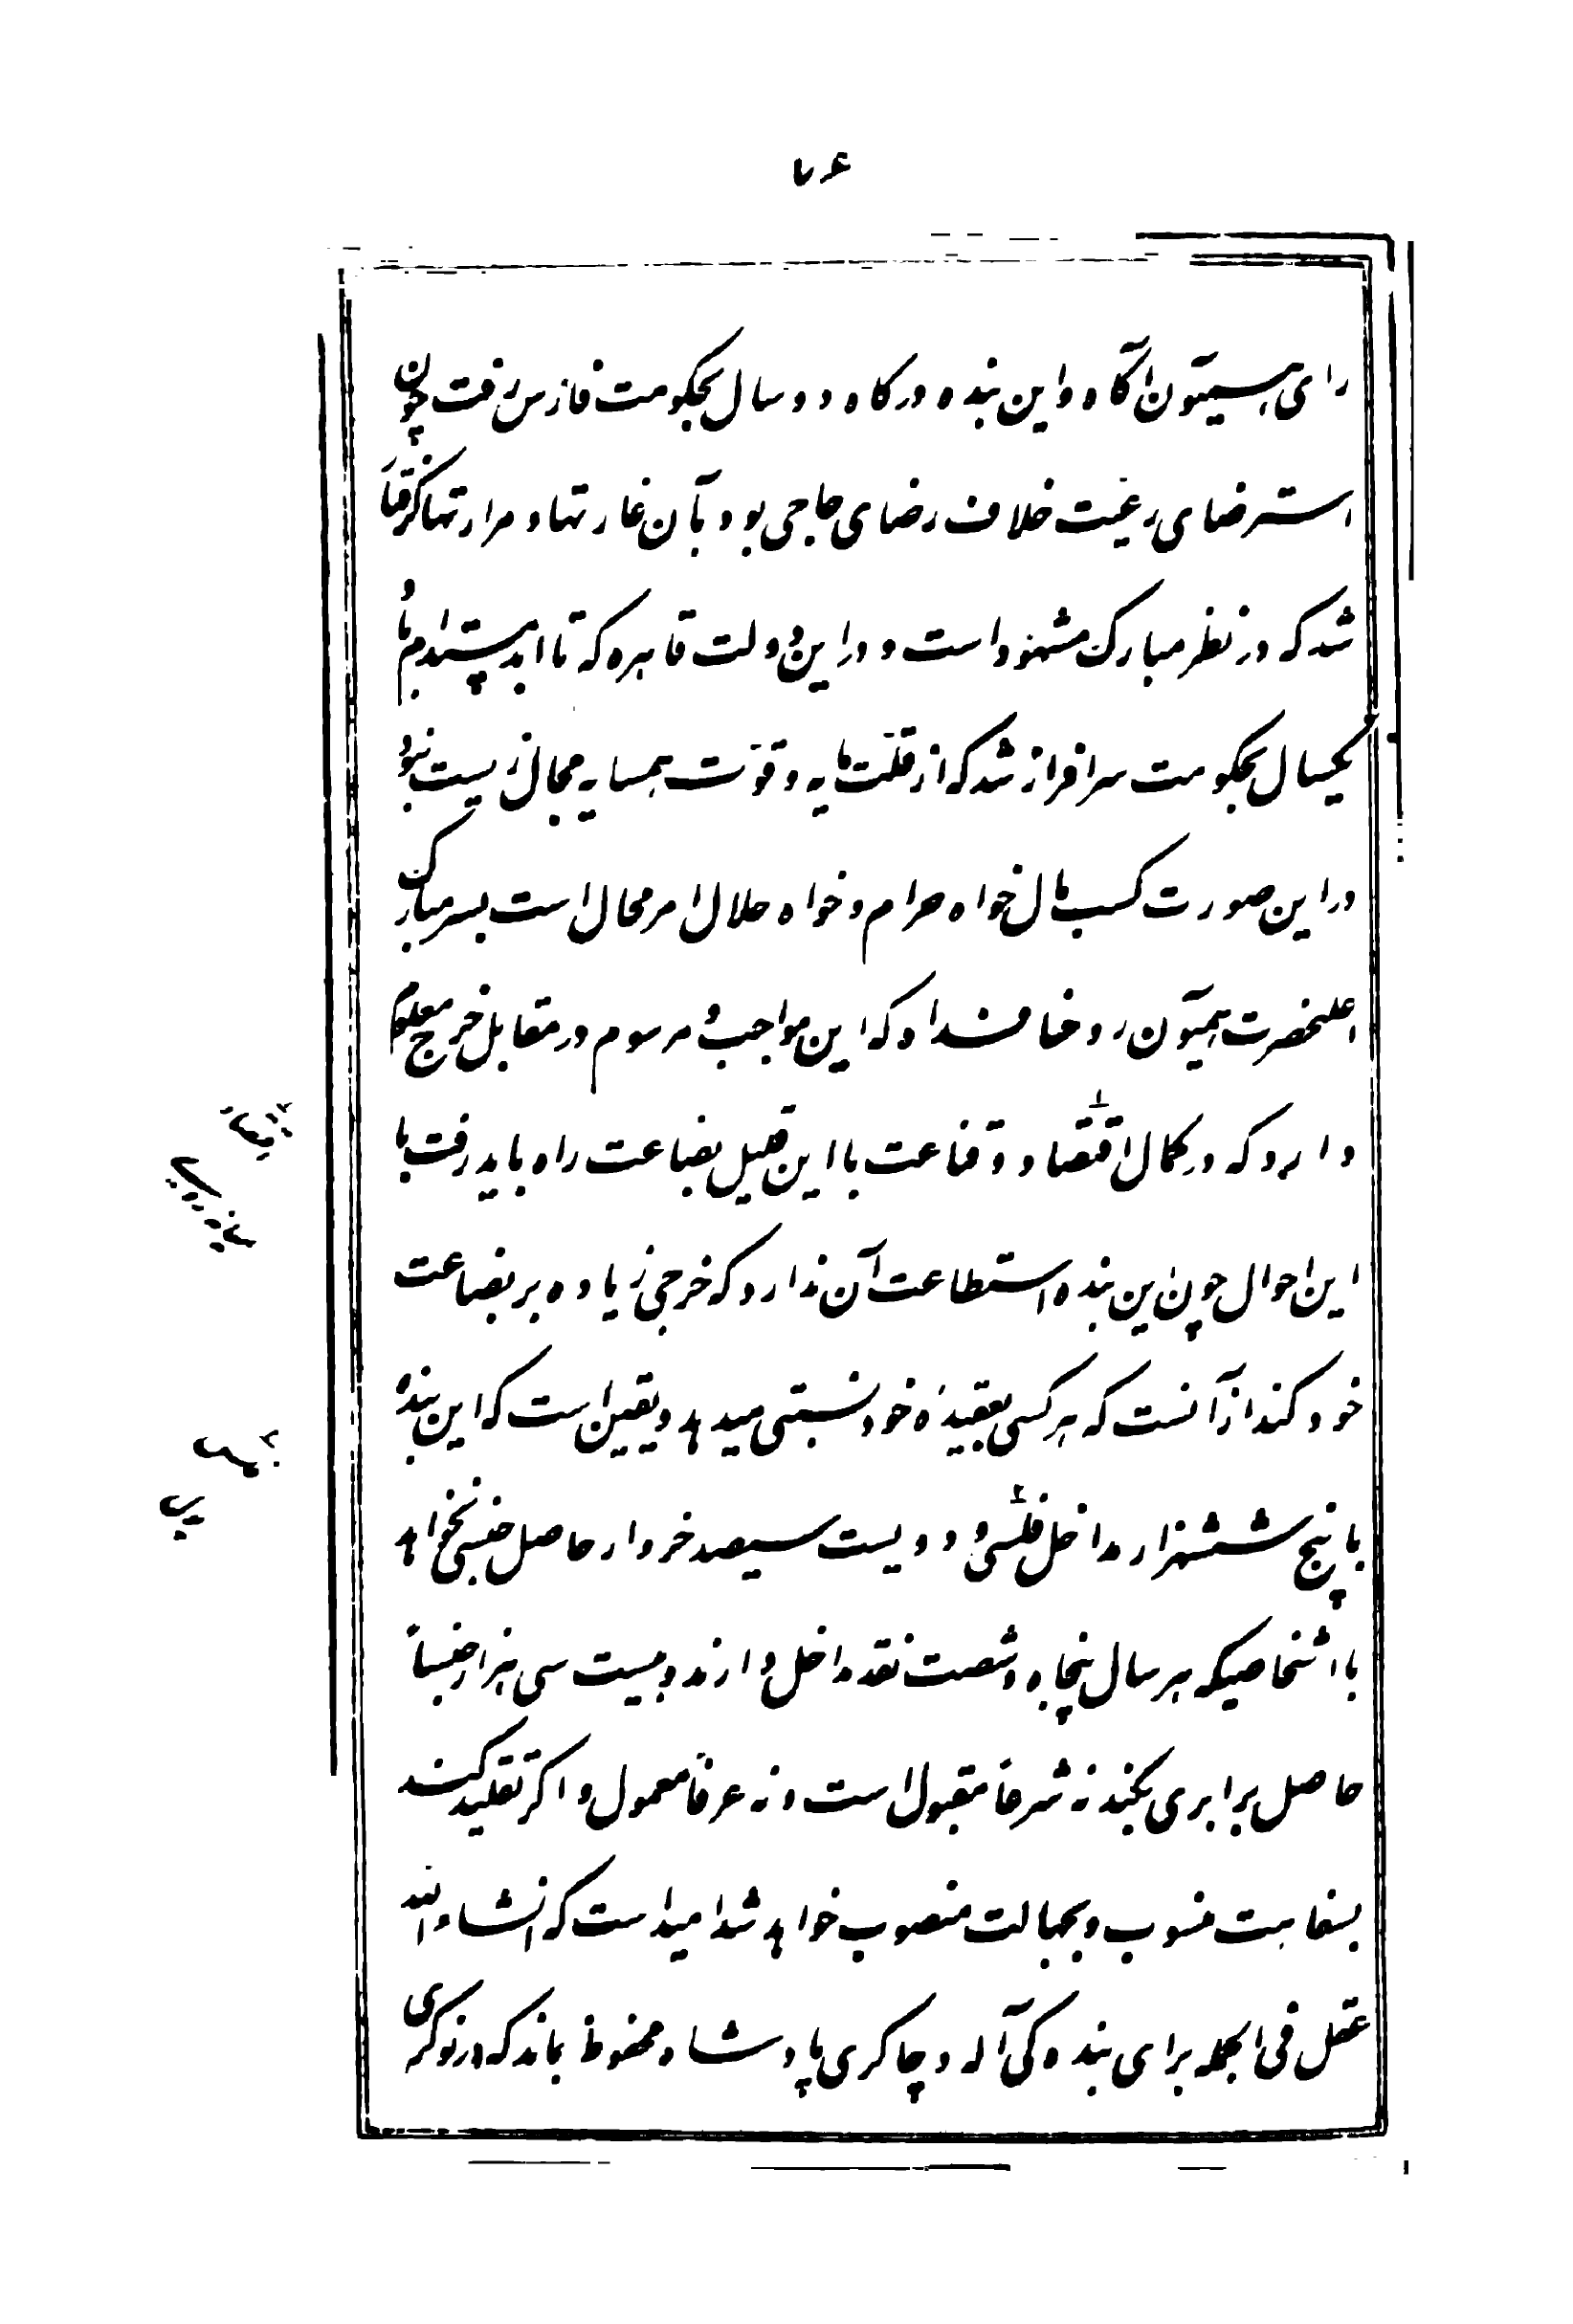 ۷۶
رای همیون آگاه و این بنده درگاه دو سال بحکومت فارس رفت چون
استرضای رعیت خلاف رضای حاجی بود بآن غارتها و مرارتها گرفتار
شد که در نظر مبارک مشهود است و در این دولت قاهره که تا ابد پاینده باد
یکسال بحکومت سرافراز شد که از قلت مایه و قوت همسایه مجال زیست نبود
در این صورت کسب مال خواه حرام و خواه حلال امر محال است بسر مبارک
اعلیحضرت همیون روحنا فداه که این مواجب و مرسوم در مقابل خرج معلوم
دارد که در کمال اقتصاد و قناعت با این قلیل بضاعت راه باید رفت با
این احوال چون این بنده استطاعت آن ندارد که خرجی زیاده بر بضاعت
خود کند از آنست که هر کسی بعقیده خود نسبتی میدهد و یقین است که این بنده
با پنج ششهزار مداخل فلسی و دویست سیصد خروار حاصل جنسی نخواهد
با اشخاصیکه هر سال پنجاه و شصت نقد مداخل دارند و بیست سی هزار جنساً
حاصل برابری بکند نه شرعاً مقبول است و نه عرفاً معمول و اگر تقلید کند
بسفاهت منسوب و بجهالت منصوب خواهد شد امید است که انشاء الله
عقل فی الجمله برای بندگی آله و چاکری پادشاه محفوظ بماند که در نوکری